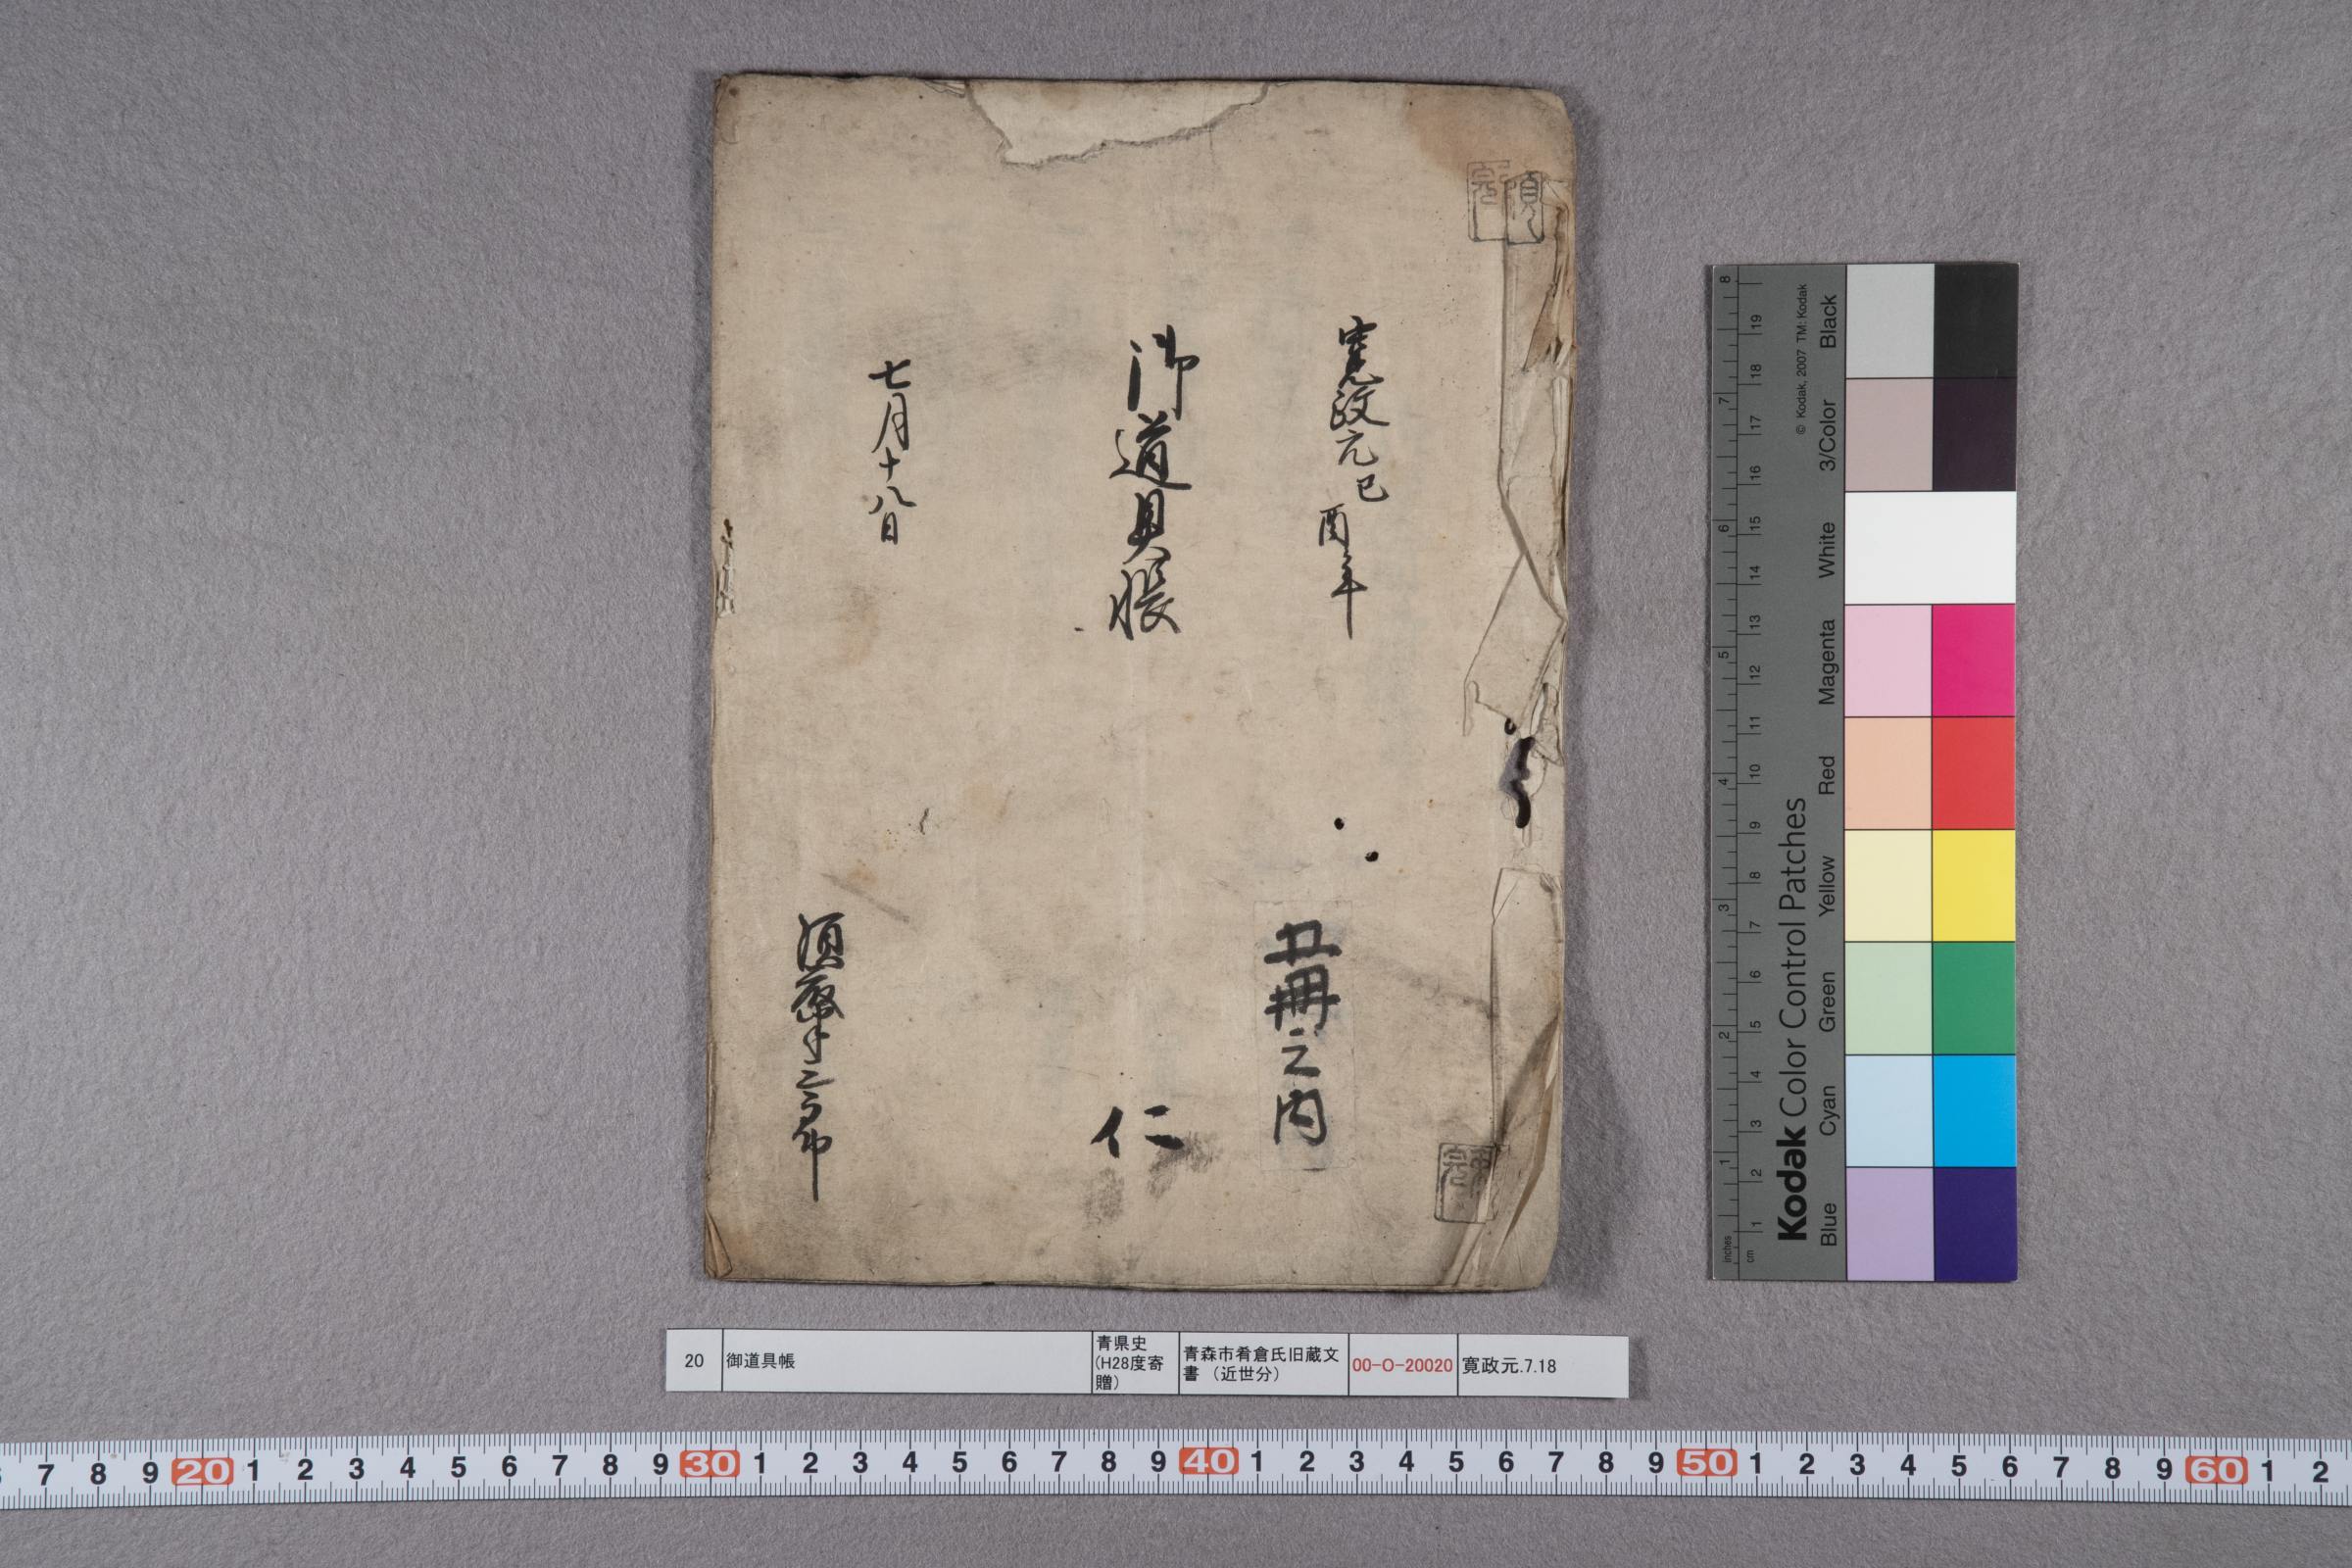 寛政元己
酉年
御道具帳
七月十八日
廿冊之内
仁
20
御道具帳
青県史
(H28度寄
贈)
青森市肴倉氏旧蔵文
書 (近世分)
00-O-20020
寛政元.7.18
Kodak Color Control Patches
© Kodak, 2007 TM: Kodak
Blue
Cyan
Green
Yellow
Red
Magenta
White
3/Color
Black
inches
1 2 3 4 5 6 7 8
cm
1 2 3 4 5 6 7 8 9 10 11 12 13 14 15 16 17 18 19
7 8 9 20 1 2 3 4 5 6 7 8 9 30 1 2 3 4 5 6 7 8 9 40 1 2 3 4 5 6 7 8 9 50 1 2 3 4 5 6 7 8 9 60 1 2